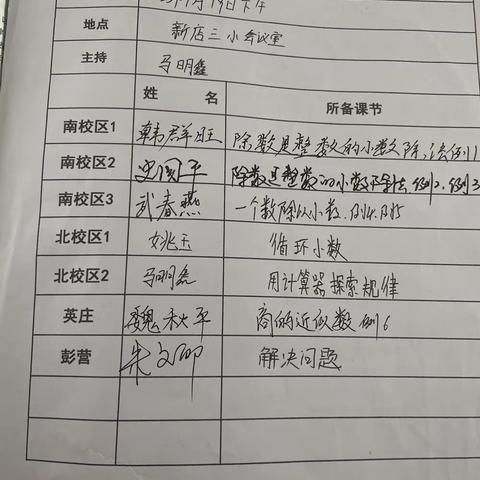 月19日下午
地点 新店三小会议室
主持 马明鑫
姓 名 所备课节
南校区1 韩群旺 除数是整数的小数除法例1
南校区2 史国平 除数是整数的小数除法例2、例3
南校区3 武春燕 一个数除以小数.例4.例5
北校区1 姚玉 循环小数
北校区2 马明鑫 用计算器探索规律
英庄 魏秋平 商的近似数 例6
彭营 朱文卿 解决问题